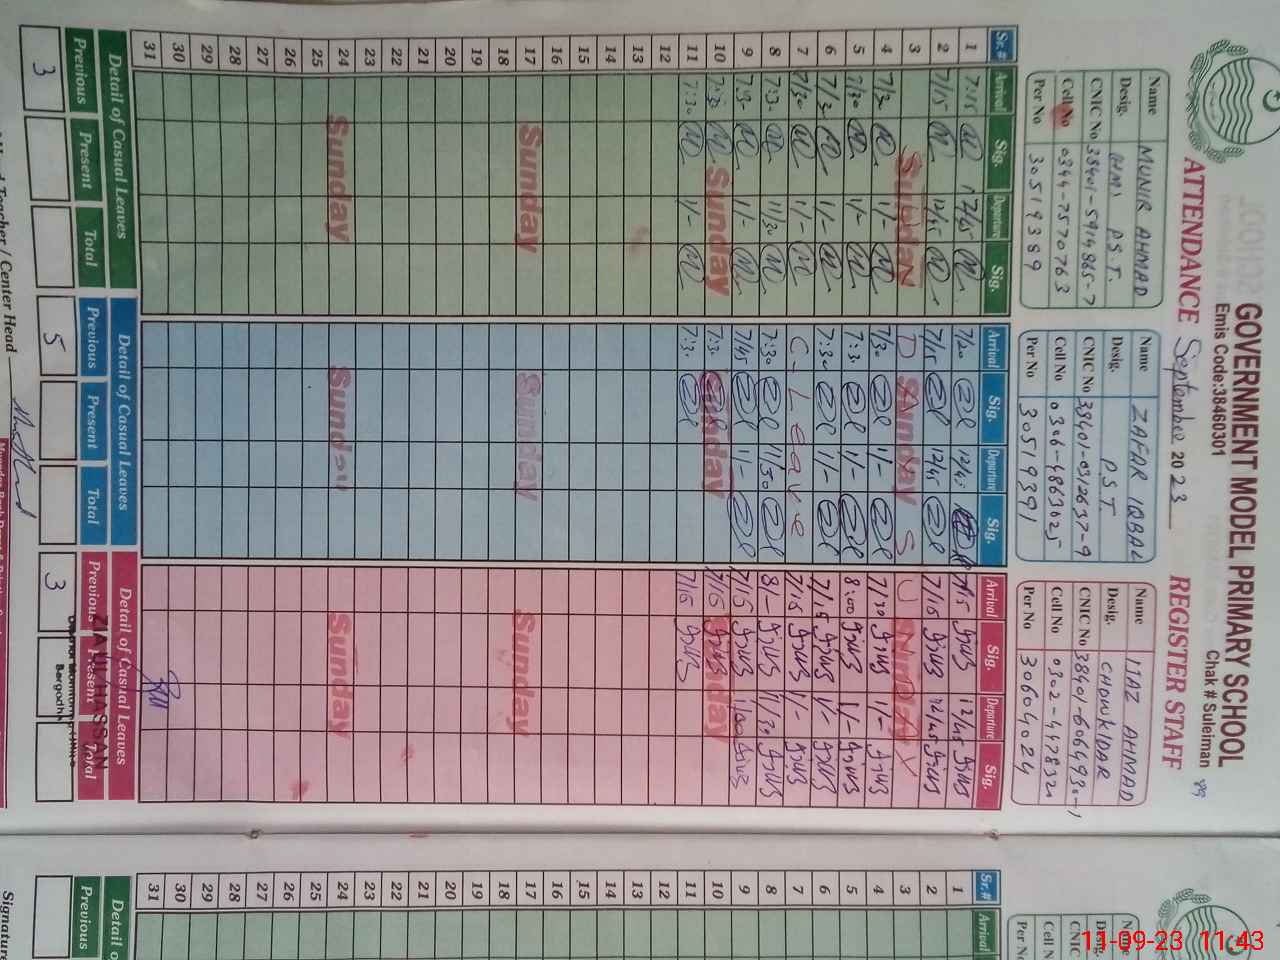 GOVERNMENT MODEL PRIMARY SCHOOL
Emis Code:38460301 Chak # Suleiman 99
ATTENDANCE September 2023 REGISTER STAFF
Name MUNIR AHMAD
Desig. (HM) P.S.T.
CNIC No 38401-5914865-7
Cell No 0344-7570763
Per No 30519389
Name ZAFAR IQBAL
Desig. P.S.T.
CNIC No 38401-0312637-9
Cell No 0306-4863025
Per No 30519391
Name IJAZ AHMAD
Desig. CHOWKIDAR
CNIC No 38401-6064930-1
Cell No 0302-4478320
Per No 30604024
Sr.# Arrival Sig. Departure Sig. Arrival Sig. Departure Sig. Arrival Sig. Departure Sig.
1 7:15 12/45 7/20 12/45 7/15 12/45
2 7/15 12/45 7/15 12/45 7/15 12/45
3 Sunday S U N D A Y
4 7/30 1/- 7/30 1/- 7/30 1/-
5 7/30 1/- 7:30 1/- 8:00 1/-
6 7/30 1/- 7:30 1/- 7/15 1/-
7 7/30 1/- C-Leave 7/15 1/-
8 7:30 11/30 7:30 11/30 8/- 11/30
9 7:30 1/- 7/45 1/- 7/15 1/00
10 7:30 Sunday 7:30 Sunday 7/15 Sunday
11 7:30 1/- 7:30 7/15
12
13
14
15
16
17 Sunday Sunday Sunday
18
19
20
21
22
23
24 Sunday Sunday Sunday
25
26
27
28
29
30
31
Detail of Casual Leaves Detail of Casual Leaves Detail of Casual Leaves
Previous Present Total Previous Present Total Previous Present Total
3 5 3
ZIA UL HASSAN
Head Teacher / Center Head
Sr.# Arrival
1
2
3
4
5
6
7
8
9
10
11
12
13
14
15
16
17
18
19
20
21
22
23
24
25
26
27
28
29
30
31
Previous
Signature
11-09-23 11:43